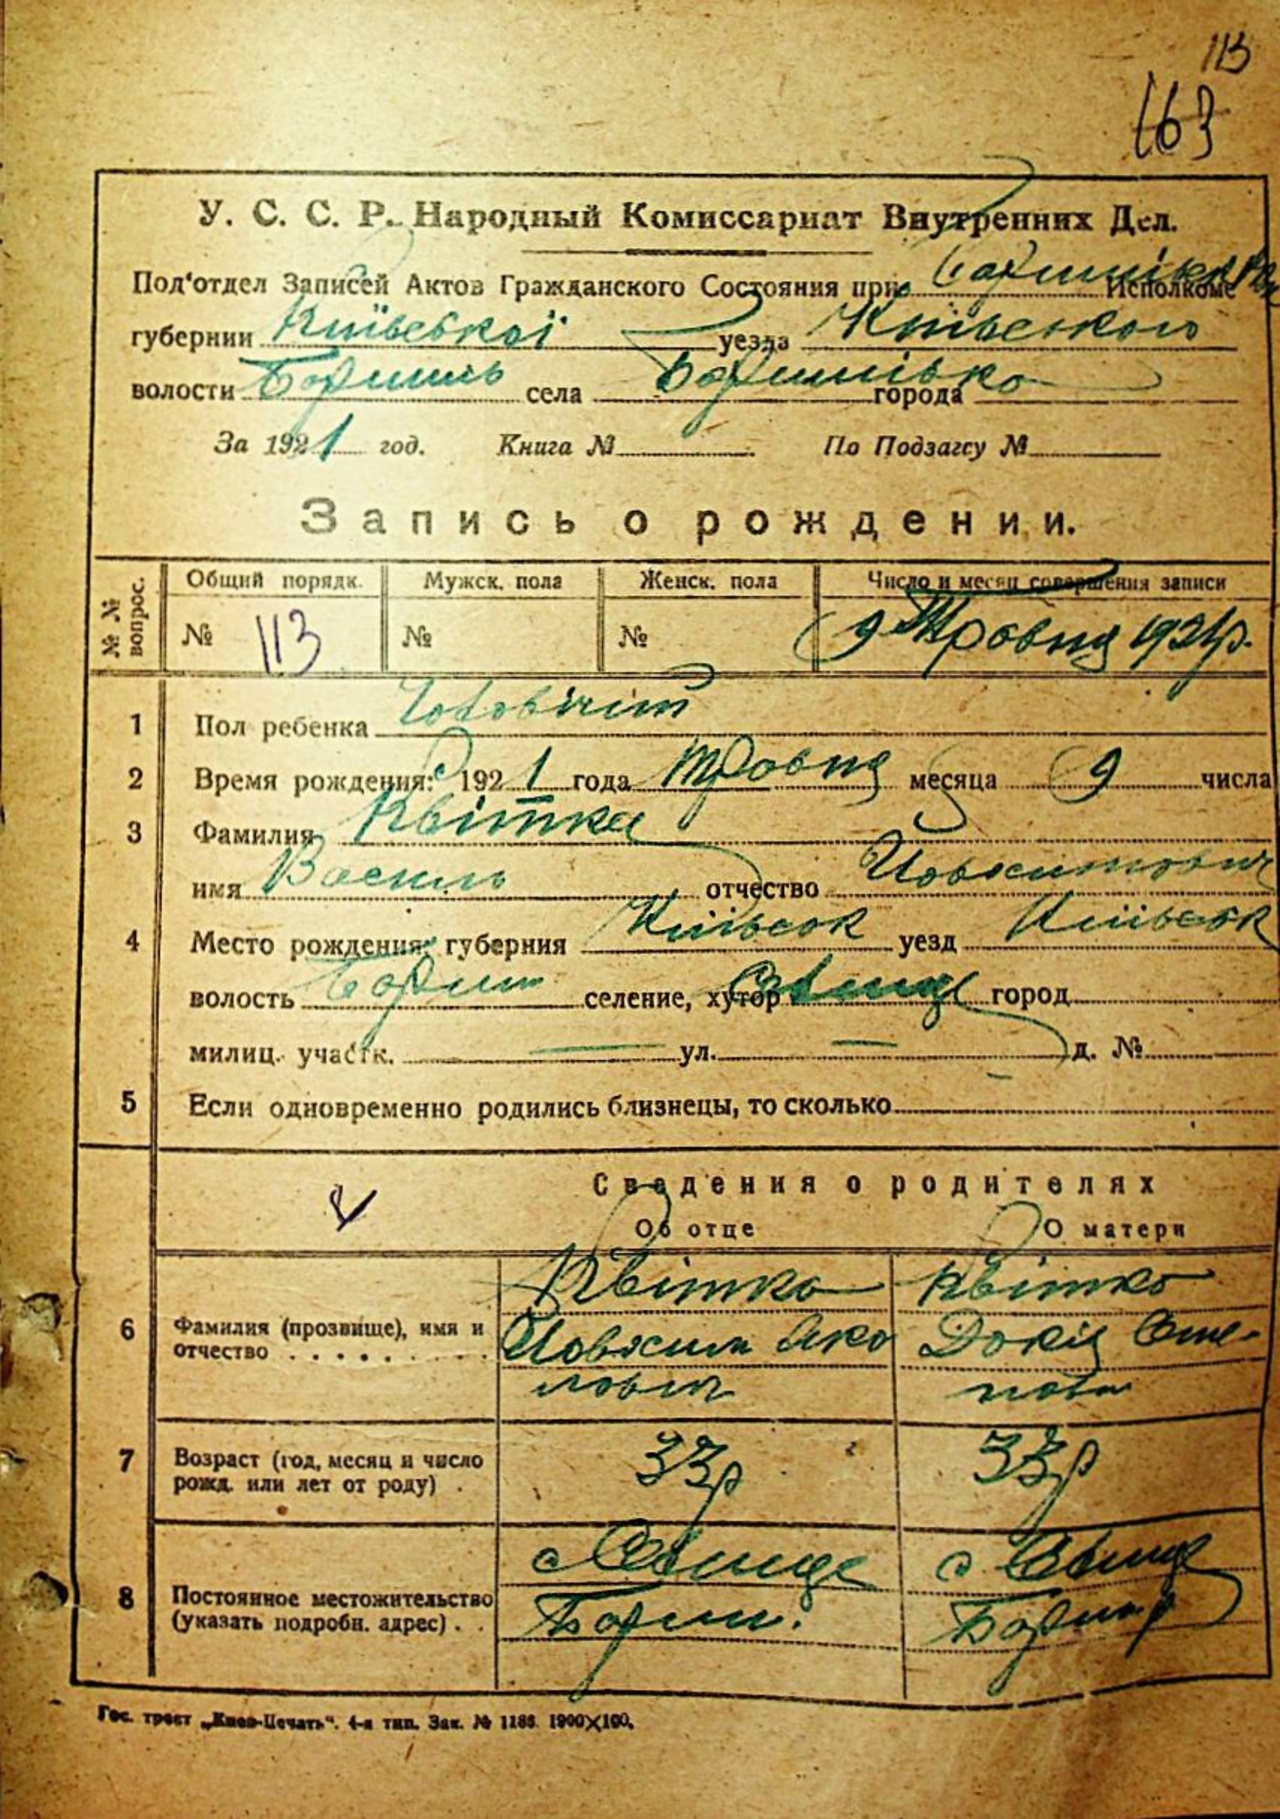 113
163
У. С. С. Р. Народный Комиссариат Внутренних Дел.
Под'отдел Записей Актов Гражданского Состояния при Исполкоме
губернии Київської уезда Київського
волости Бориспіль села города
За 1921 год. Книга № По Подзагсу №
Запись о рождении.
№ № вопрос. Общий порядк. Мужск. пола Женск. пола Число и месяц совершения записи
№ 113 № № 9 Травня 1921р.
1 Пол ребенка Чоловічий
2 Время рождения: 1921 года Травня месяца 9 числа
3 Фамилия Квітка
имя Василь отчество Йовхимович
4 Место рождения: губерния Київськ уезд Київськ
волость Борисп селение, хутор город
милиц. участк. — ул. — д. №
5 Если одновременно родились близнецы, то сколько
Сведения о родителях
Об отце О матери
6 Фамилия (прозвище), имя и отчество Квітка Квітка
Йовхим Яко Докія Сте-
7 Возраст (год, месяц и число рожд. или лет от роду) . 33р 33р
8 Постоянное местожительство (указать подробн. адрес) . .
Гос. трест „Киев-Печать“. 4-я тип. Зак. № 1186. 1900×100.